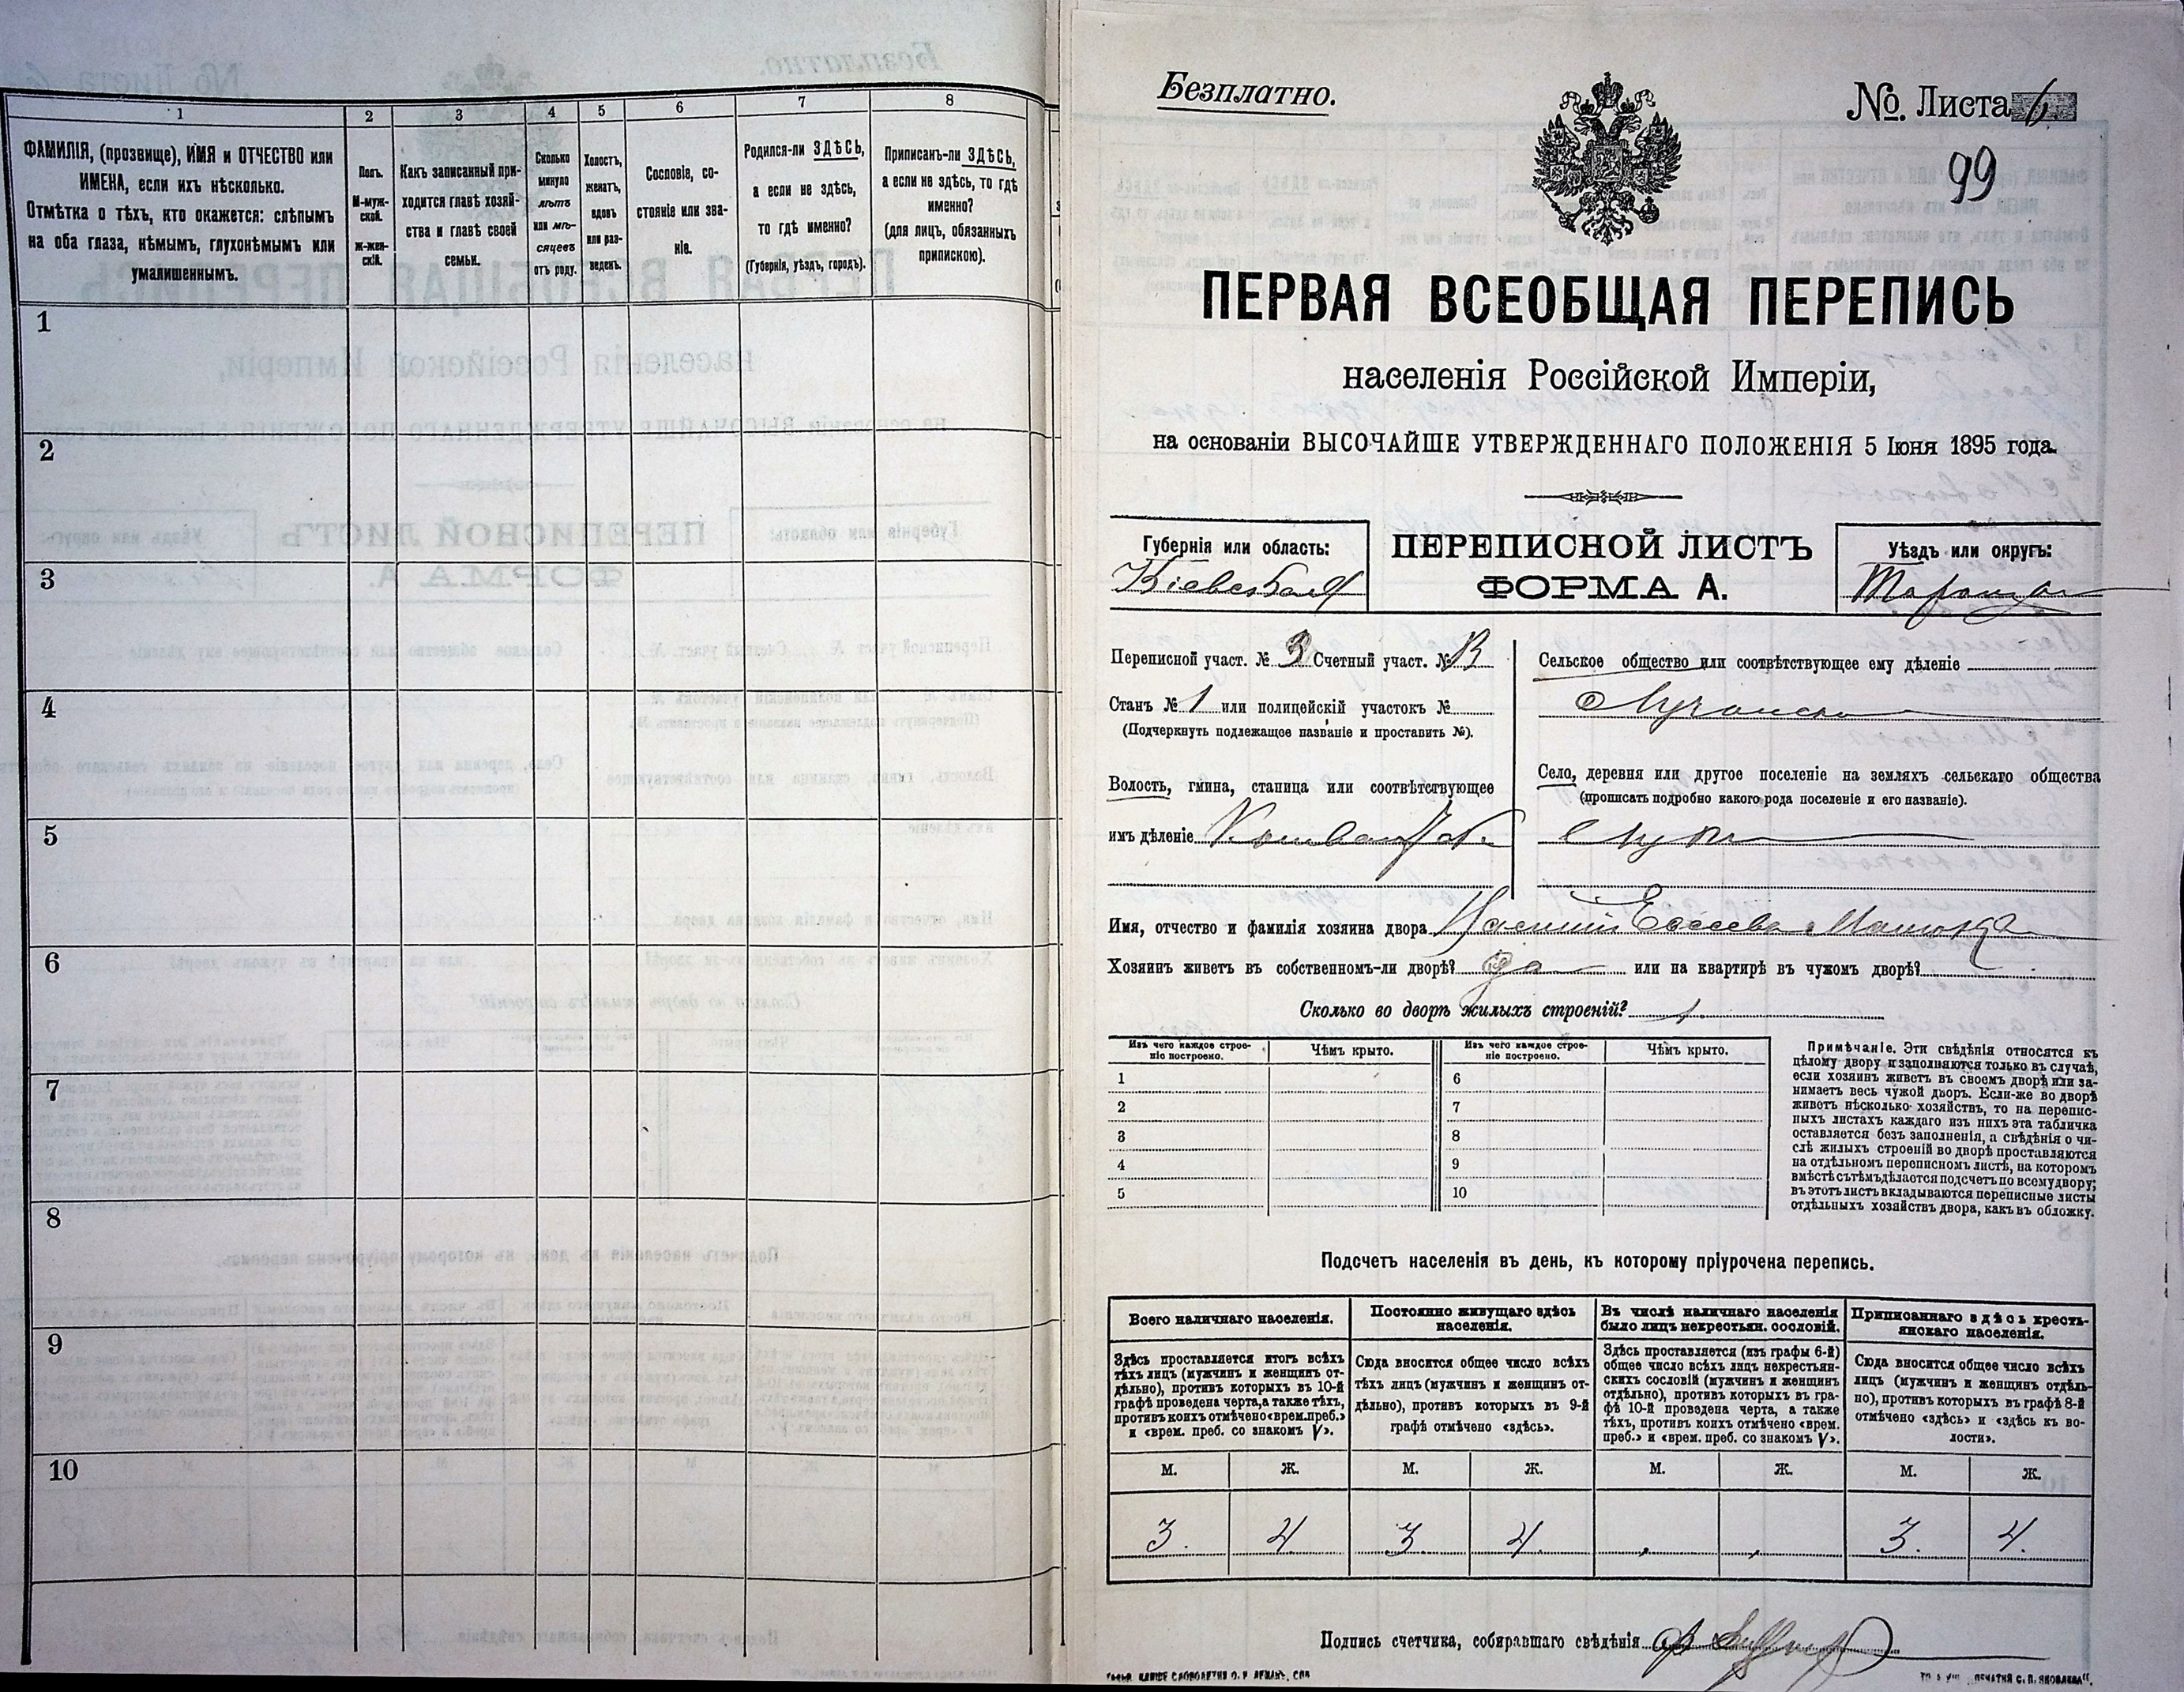 1
2
3
4
5
6
7
8
ФАМИЛІЯ, (прозвище), ИМЯ и ОТЧЕСТВО или
ИМЕНА, если ихъ нѣсколько.
Отмѣтка о тѣхъ, кто окажется: слѣпымъ
на оба глаза, нѣмымъ, глухонѣмымъ или
умалишеннымъ.
Полъ.
М-муж-
ской.
Ж-жен-
скій.
Какъ записанный при-
ходится главѣ хозяй-
ства и главѣ своей
семьи.
Сколько
минуло
лѣтъ
или мѣ-
сяцевъ
отъ роду.
Холостъ,
женатъ,
вдовъ
или раз-
веденъ.
Сословіе, со-
стояніе или зва-
ніе.
Родился-ли ЗДѢСЬ,
а если не здѣсь,
то гдѣ именно?
(Губернія, уѣздъ, городъ).
Приписанъ-ли ЗДѢСЬ,
а если не здѣсь, то гдѣ
именно?
(для лицъ, обязанныхъ
припискою).
1
2
3
4
5
6
7
8
9
10
Безплатно.
№. Листа 6
99
ПЕРВАЯ ВСЕОБЩАЯ ПЕРЕПИСЬ
населенія Россійской Имперіи,
на основаніи ВЫСОЧАЙШЕ УТВЕРЖДЕННАГО ПОЛОЖЕНІЯ 5 Іюня 1895 года.
Губернія или область:
Кіевская
ПЕРЕПИСНОЙ ЛИСТЪ
ФОРМА А.
Уѣздъ или округъ:
Таращан
Переписной участ. № 3 Счетный участ. №
Станъ № 1 или полицейскій участокъ №
(Подчеркнуть подлежащее названіе и проставить №).
Волость, гмина, станица или соотвѣтствующее
имъ дѣленіе
Сельское общество или соотвѣтствующее ему дѣленіе
Лучанско
Село, деревня или другое поселеніе на земляхъ сельскаго общества
(прописать подробно какого рода поселеніе и его названіе).
с Лука
Имя, отчество и фамилія хозяина двора
Хозяинъ живетъ въ собственномъ-ли дворѣ? да или на квартирѣ въ чужомъ дворѣ?
Сколько во дворѣ жилыхъ строеній? 1
Изъ чего каждое строе-
ніе построено.
Чѣмъ крыто.
Изъ чего каждое строе-
ніе построено.
Чѣмъ крыто.
1
2
3
4
5
6
7
8
9
10
Примѣчаніе. Эти свѣдѣнія относятся къ
цѣлому двору и заполняются только въ случаѣ,
если хозяинъ живетъ въ своемъ дворѣ или за-
нимаетъ весь чужой дворъ. Если-же во дворѣ
живетъ нѣсколько хозяйствъ, то на перепис-
ныхъ листахъ каждаго изъ нихъ эта табличка
оставляется безъ заполненія, а свѣдѣнія о чи-
слѣ жилыхъ строеній во дворѣ проставляются
на отдѣльномъ переписномъ листѣ, на которомъ
вмѣстѣ съ тѣмъ дѣлается подсчетъ по всему двору;
въ этотъ листъ вкладываются переписные листы
отдѣльныхъ хозяйствъ двора, какъ въ обложку.
Подсчетъ населенія въ день, къ которому пріурочена перепись.
Всего наличнаго населенія.
Здѣсь проставляется итогъ всѣхъ
тѣхъ лицъ (мужчинъ и женщинъ от-
дѣльно), противъ которыхъ въ 10-й
графѣ проведена черта, а также тѣхъ,
противъ коихъ отмѣчено «врем. преб.»
и «врем. преб. со знакомъ V».
Постоянно живущаго здѣсь
населенія.
Сюда вносится общее число всѣхъ
тѣхъ лицъ (мужчинъ и женщинъ от-
дѣльно), противъ которыхъ въ 9-й
графѣ отмѣчено «здѣсь».
Въ числѣ наличнаго населенія
было лицъ некрестьян. сословій.
Здѣсь проставляется (изъ графы 6-й)
общее число всѣхъ лицъ некрестьян-
скихъ сословій (мужчинъ и женщинъ
отдѣльно), противъ которыхъ въ гра-
фѣ 10-й проведена черта, а также
тѣхъ, противъ коихъ отмѣчено «врем.
преб.» и «врем. преб. со знакомъ V».
Приписаннаго здѣсь кресть-
янскаго населенія.
Сюда вносится общее число всѣхъ
лицъ (мужчинъ и женщинъ отдѣль-
но), противъ которыхъ въ графѣ 8-й
отмѣчено «здѣсь» и «здѣсь къ во-
лости».
М. Ж. М. Ж. М. Ж. М. Ж.
3. 4 3 4. 3. 4.
Подпись счетчика, собиравшаго свѣдѣнія